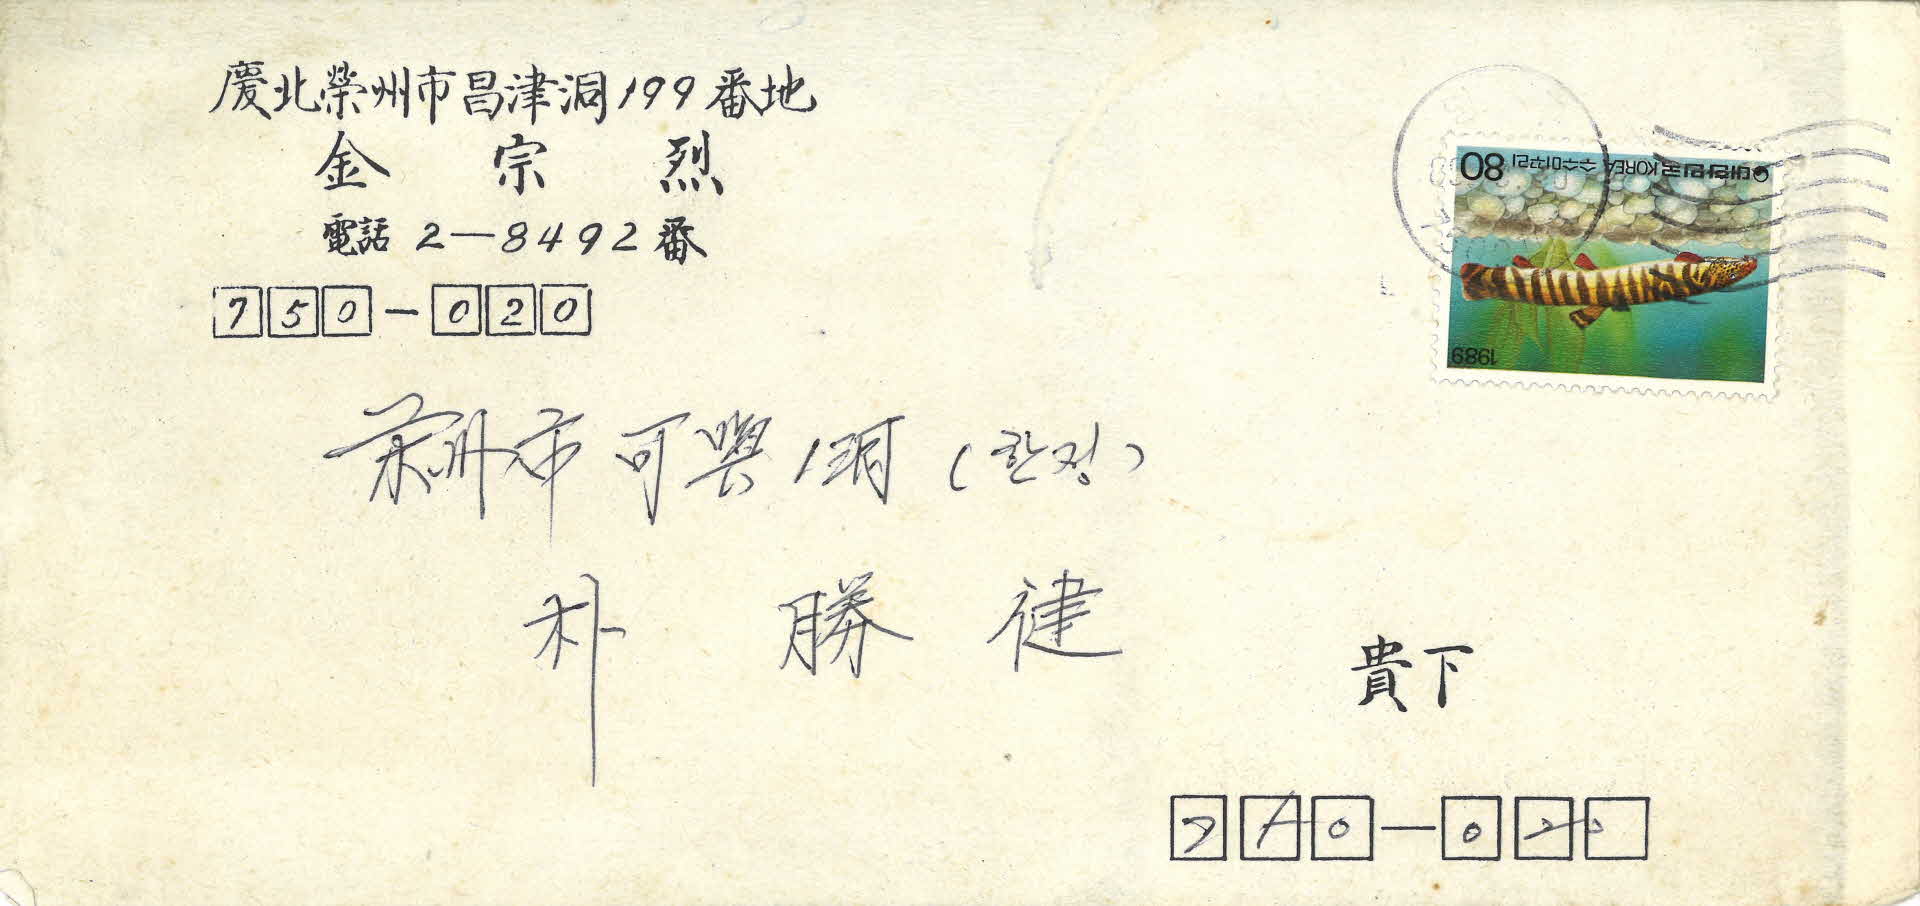 慶北榮州市昌津洞199番地
金 宗 烈
電話 2-8492番
750-020
대한민국 KOREA 수수미꾸리 80
1989
榮州市 可興1洞 (한정)
朴 勝 健
貴下
750-020